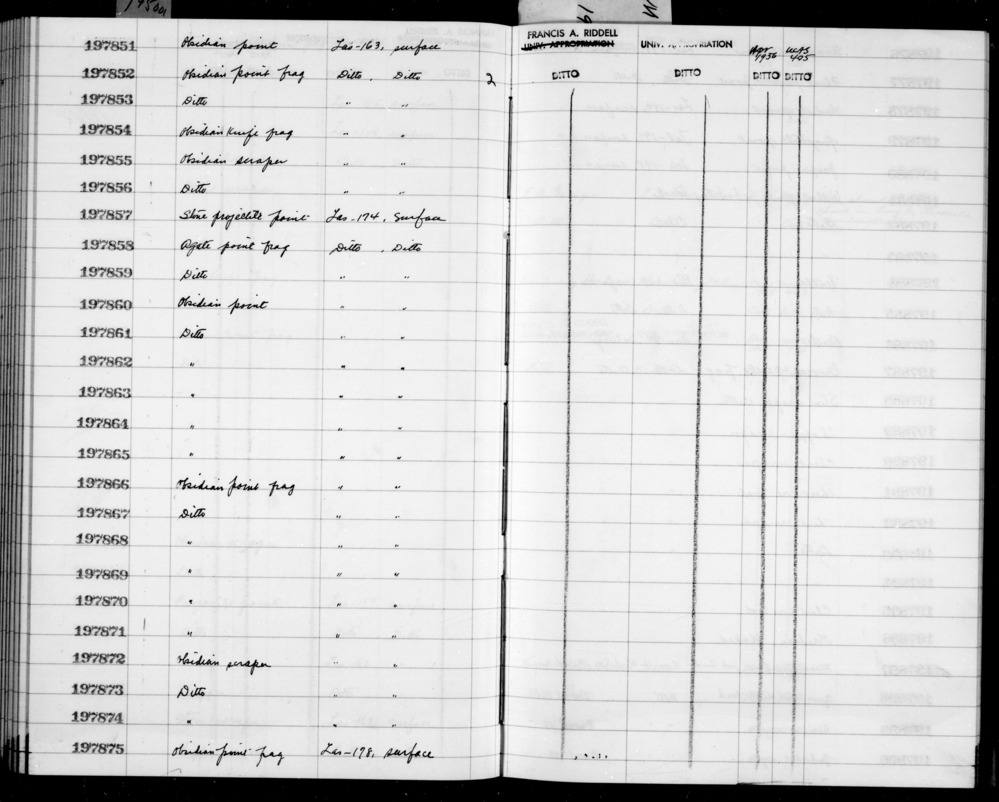 FRANCIS A. RIDDELL
197851 Obsidian point Las-163, surface UNIV. APPROPRIATION UNIV. APPROPRIATION Apr 1956 UCAS 405
197852 Obsidian point frag Ditto, Ditto 2 DITTO DITTO DITTO DITTO
197853 Ditto " "
197854 Obsidian knife frag " "
197855 Obsidian scraper " "
197856 Ditto " "
197857 Stone projectile point Las-174, Surface
197858 Agate point frag Ditto, Ditto
197859 Ditto " "
197860 Obsidian point " "
197861 Ditto " "
197862 " " "
197863 " " "
197864 " " "
197865 " " "
197866 Obsidian point frag " "
197867 Ditto " "
197868 " " "
197869 " " "
197870 " " "
197871 " " "
197872 Obsidian scraper " "
197873 Ditto " "
197874 " " "
197875 Obsidian point frag Las-178, surface